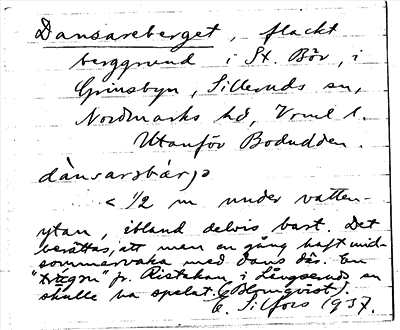 Dansareberget, flackt
berggrund i St. Bör, i
Grinsbyn, Silleruds sn,
Nordmarks hd, Vrml l.
Utanför Bodudden.
dànsarbárjə
< 1/2 m under vatten-
ytan, ibland delvis bart. Det
berättas, att man en gång haft mid-
sommarvaka med dans där. En
fr. Ristakan i Långseruds sn
skulle ha spelat. (Blomqvist).
E. Silfors 1937.